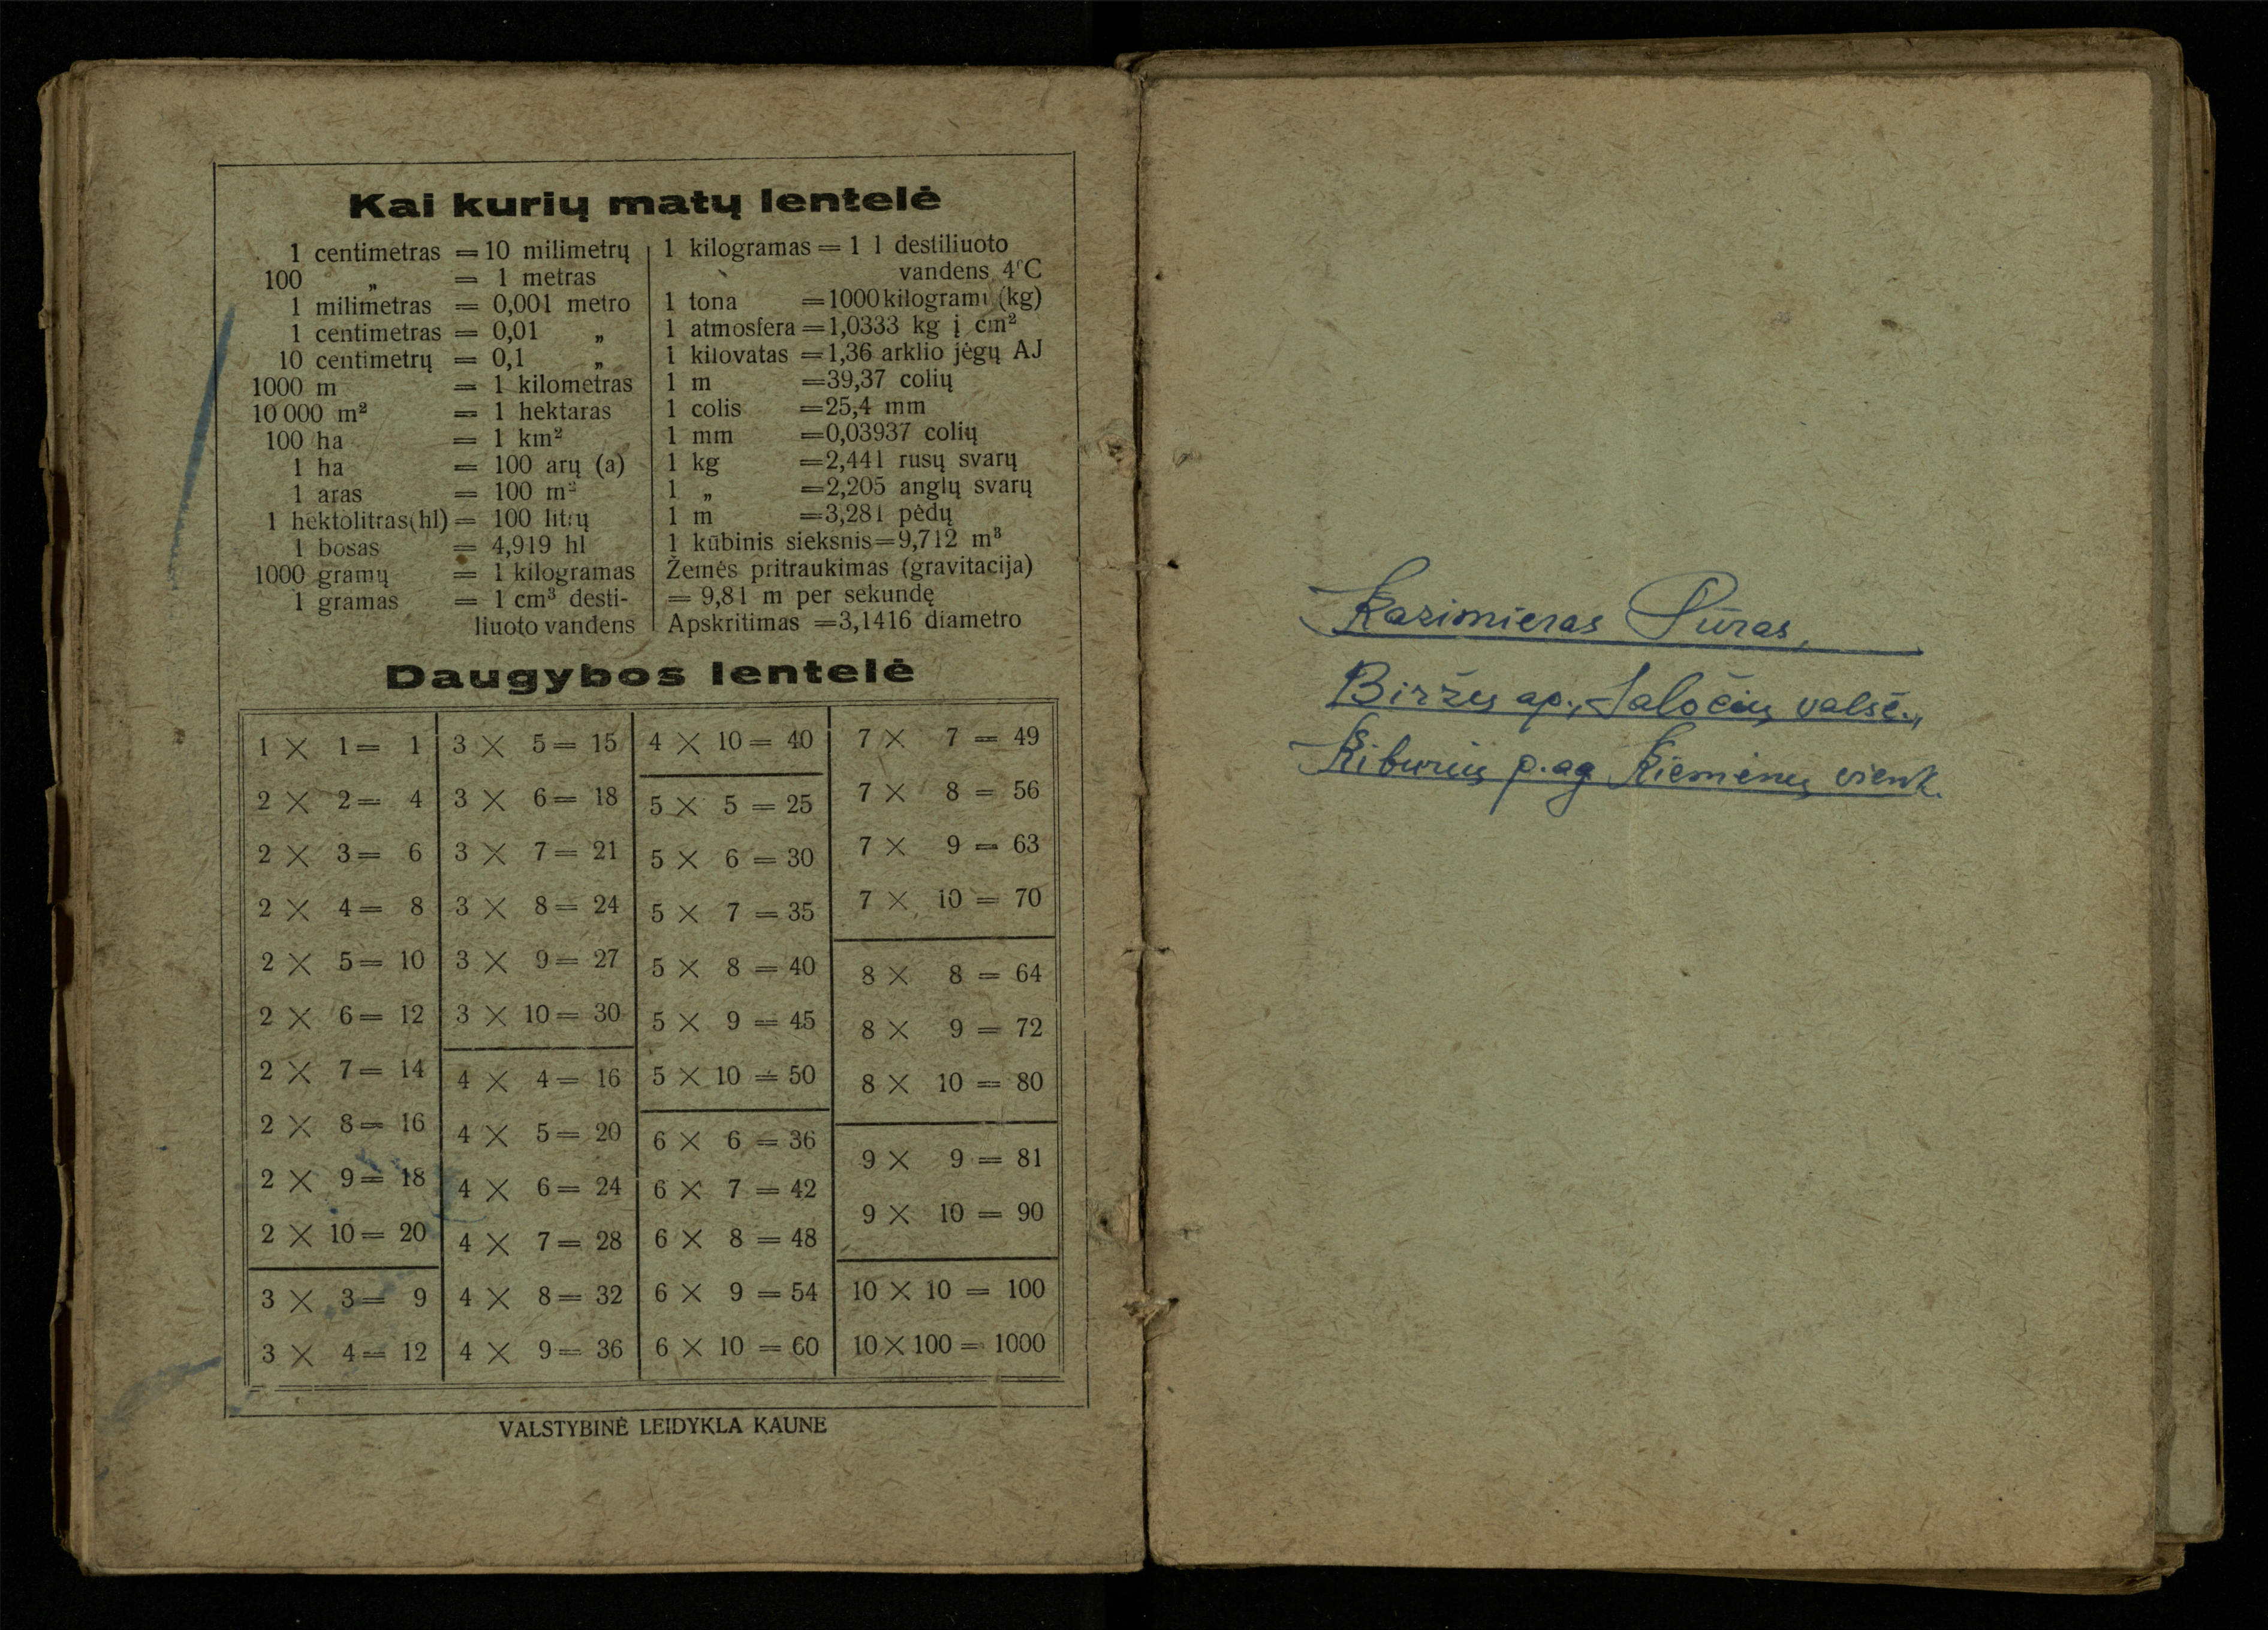 Kai kurių matų lentelė
1 centimetras = 10 milimetrų
100 „ = 1 metras
1 milimetras = 0,001 metro
1 centimetras = 0,01 „
10 centimetrų = 0,1 „
1000 m = 1 kilometras
10 000 m² = 1 hektaras
100 ha = 1 km²
1 ha = 100 arų (a)
1 aras = 100 m²
1 hektolitras(hl) = 100 litrų
1 bosas = 4,919 hl
1000 gramų = 1 kilogramas
1 gramas = 1 cm³ desti-
liuoto vandens
1 kilogramas = 1 l destiliuoto
vandens 4°C
1 tona = 1000 kilogramų (kg)
1 atmosfera = 1,0333 kg į cm²
1 kilovatas = 1,36 arklio jėgų AJ
1 m = 39,37 colių
1 colis = 25,4 mm
1 mm = 0,03937 colių
1 kg = 2,441 rusų svarų
1 „ = 2,205 anglų svarų
1 m = 3,281 pėdų
1 kūbinis sieksnis = 9,712 m³
Žemės pritraukimas (gravitacija)
= 9,81 m per sekundę
Apskritimas = 3,1416 diametro
Daugybos lentelė
1 × 1 = 1
2 × 2 = 4
2 × 3 = 6
2 × 4 = 8
2 × 5 = 10
2 × 6 = 12
2 × 7 = 14
2 × 8 = 16
2 × 9 = 18
2 × 10 = 20
3 × 3 = 9
3 × 4 = 12
3 × 5 = 15
3 × 6 = 18
3 × 7 = 21
3 × 8 = 24
3 × 9 = 27
3 × 10 = 30
4 × 4 = 16
4 × 5 = 20
4 × 6 = 24
4 × 7 = 28
4 × 8 = 32
4 × 9 = 36
4 × 10 = 40
5 × 5 = 25
5 × 6 = 30
5 × 7 = 35
5 × 8 = 40
5 × 9 = 45
5 × 10 = 50
6 × 6 = 36
6 × 7 = 42
6 × 8 = 48
6 × 9 = 54
6 × 10 = 60
7 × 7 = 49
7 × 8 = 56
7 × 9 = 63
7 × 10 = 70
8 × 8 = 64
8 × 9 = 72
8 × 10 = 80
9 × 9 = 81
9 × 10 = 90
10 × 10 = 100
10 × 100 = 1000
VALSTYBINĖ LEIDYKLA KAUNE
Kazimieras Pūras,
Biržų ap., Saločių valsč.,
Kiburių p. ag Kiemėnų vienk.